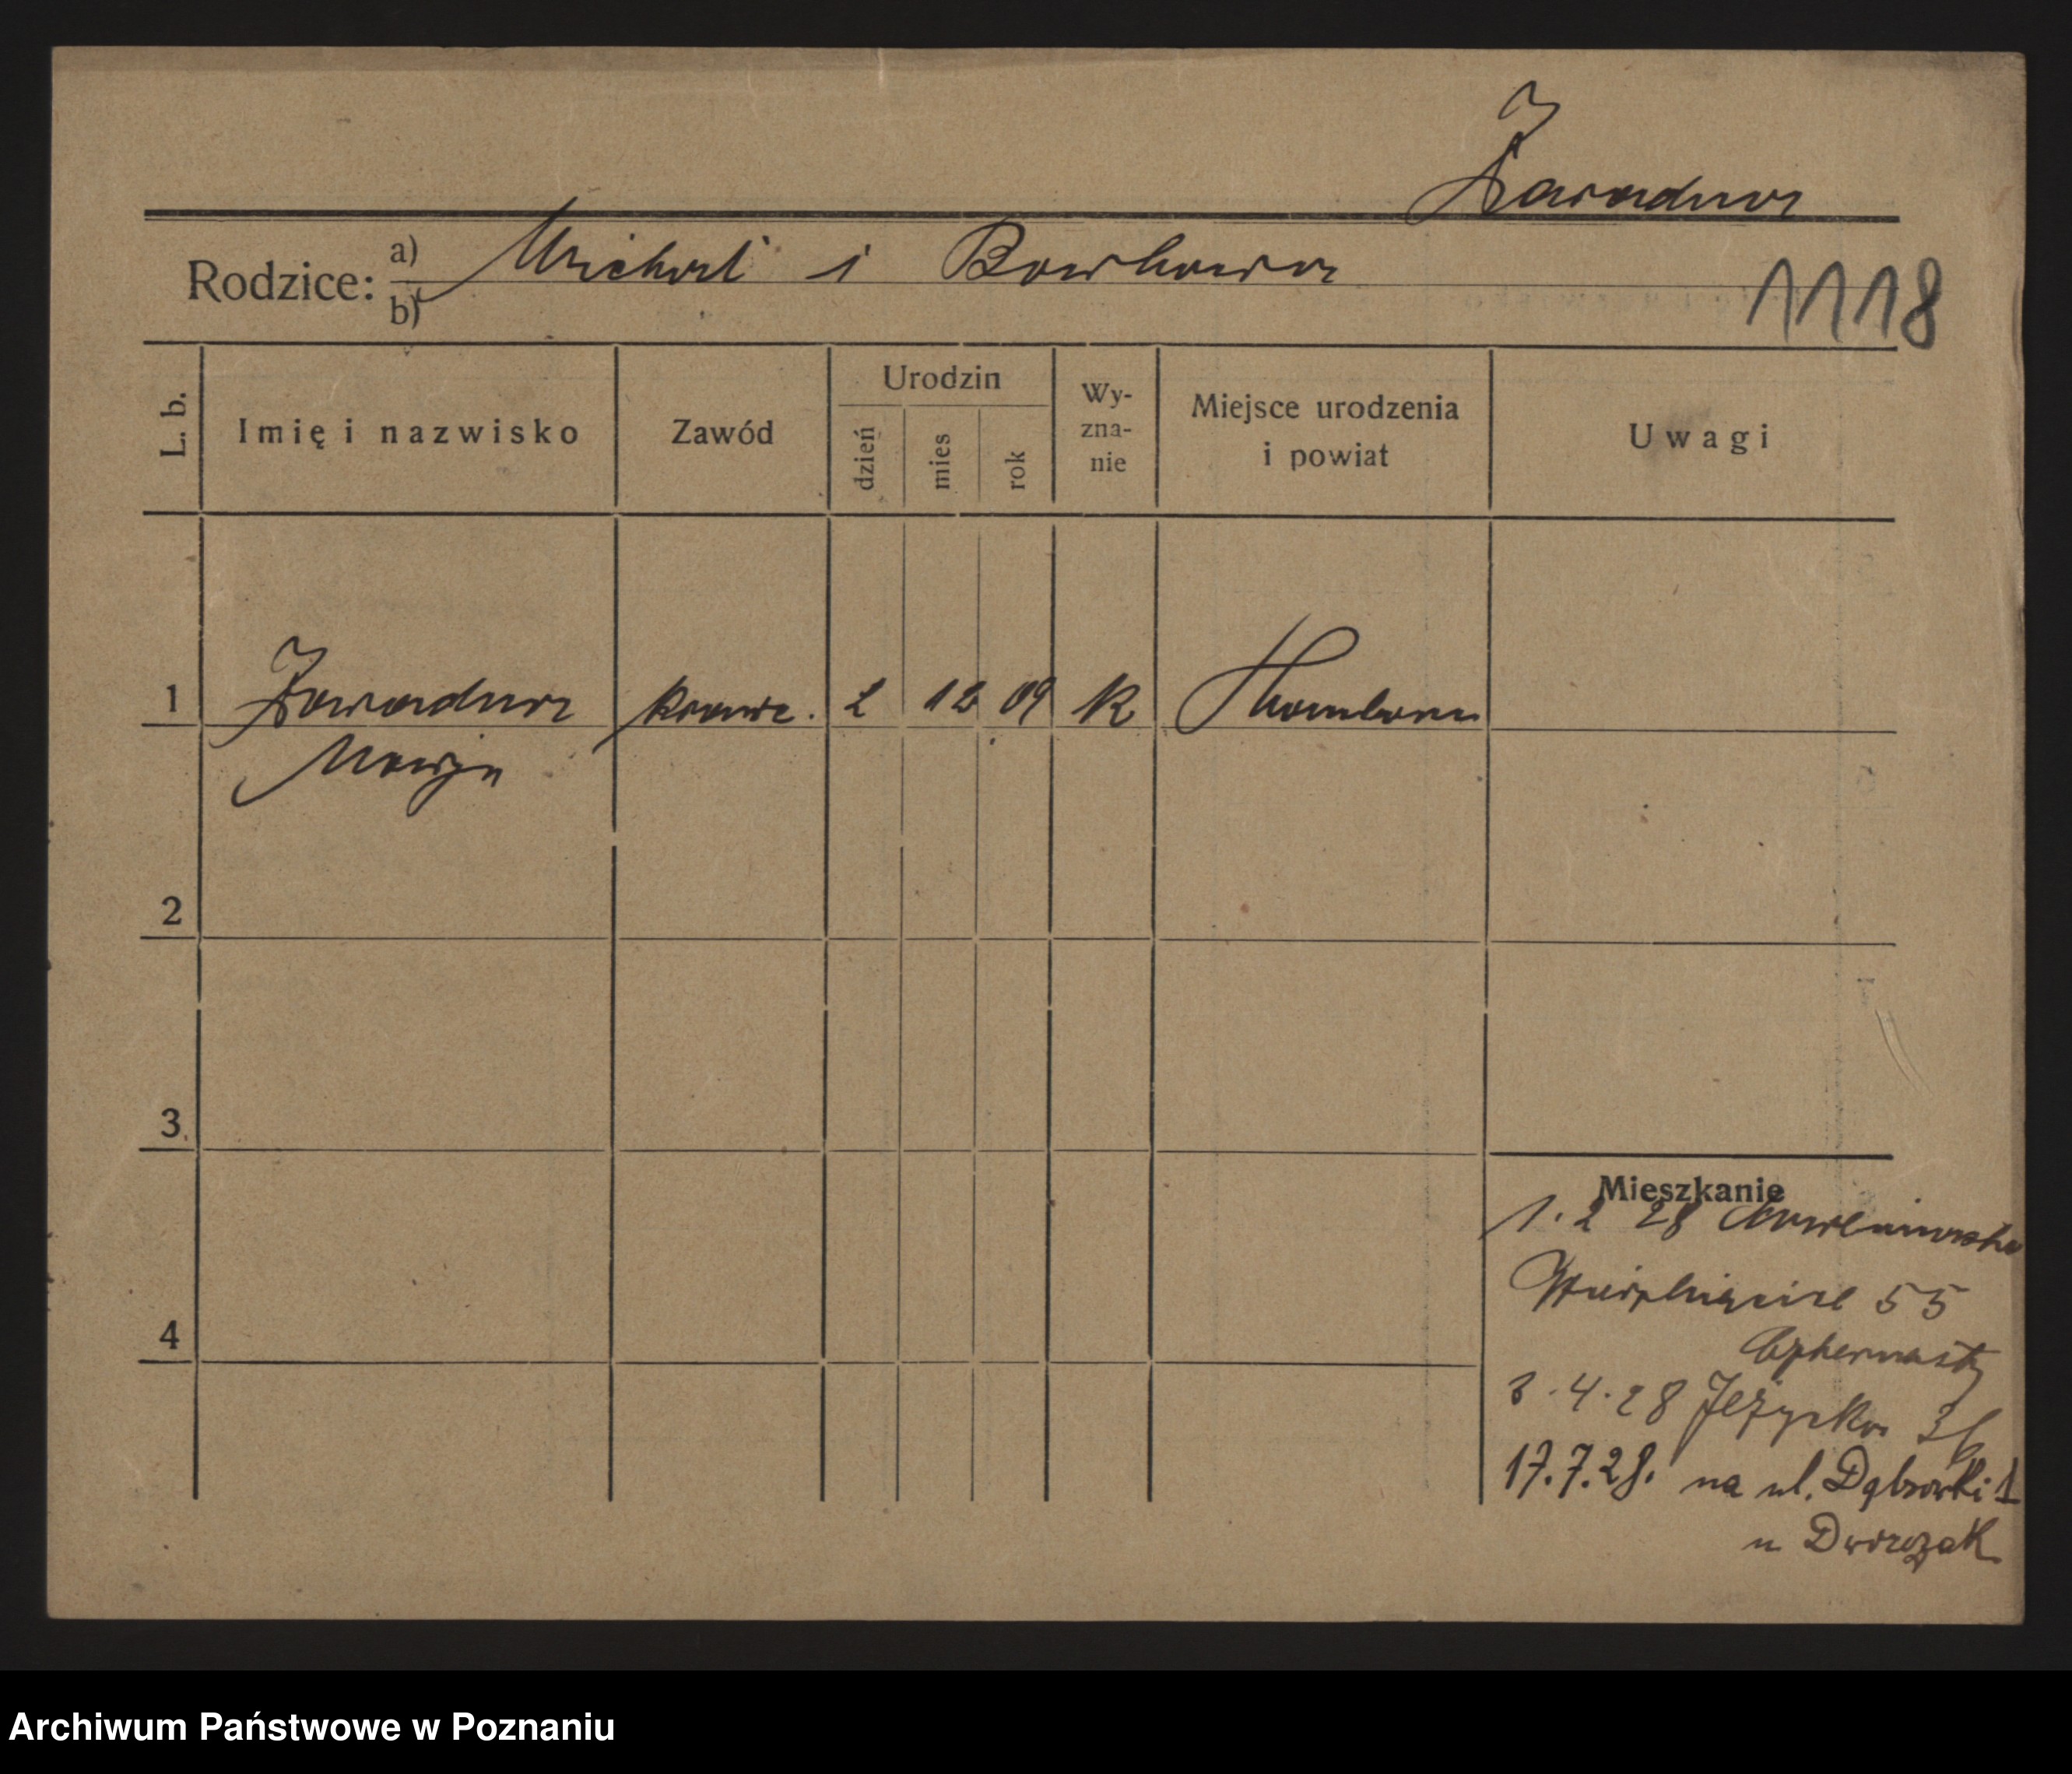 Zawadna
Rodzice: a) Michał i Barbara
b)
1118
L. b.
Imię i nazwisko
Zawód
Urodzin
dzień
mies
rok
Wy-
zna-
nie
Miejsce urodzenia
i powiat
Uwagi
1 Zawadna krawc. 2 12 09 K Hamborn
Marja
2
3
4
Mieszkanie
1. 2 28
55
3.4.28 Jeżycka 36
17.7.28. na ul. Dąbrowki 1
u Dworczak
Archiwum Państwowe w Poznaniu